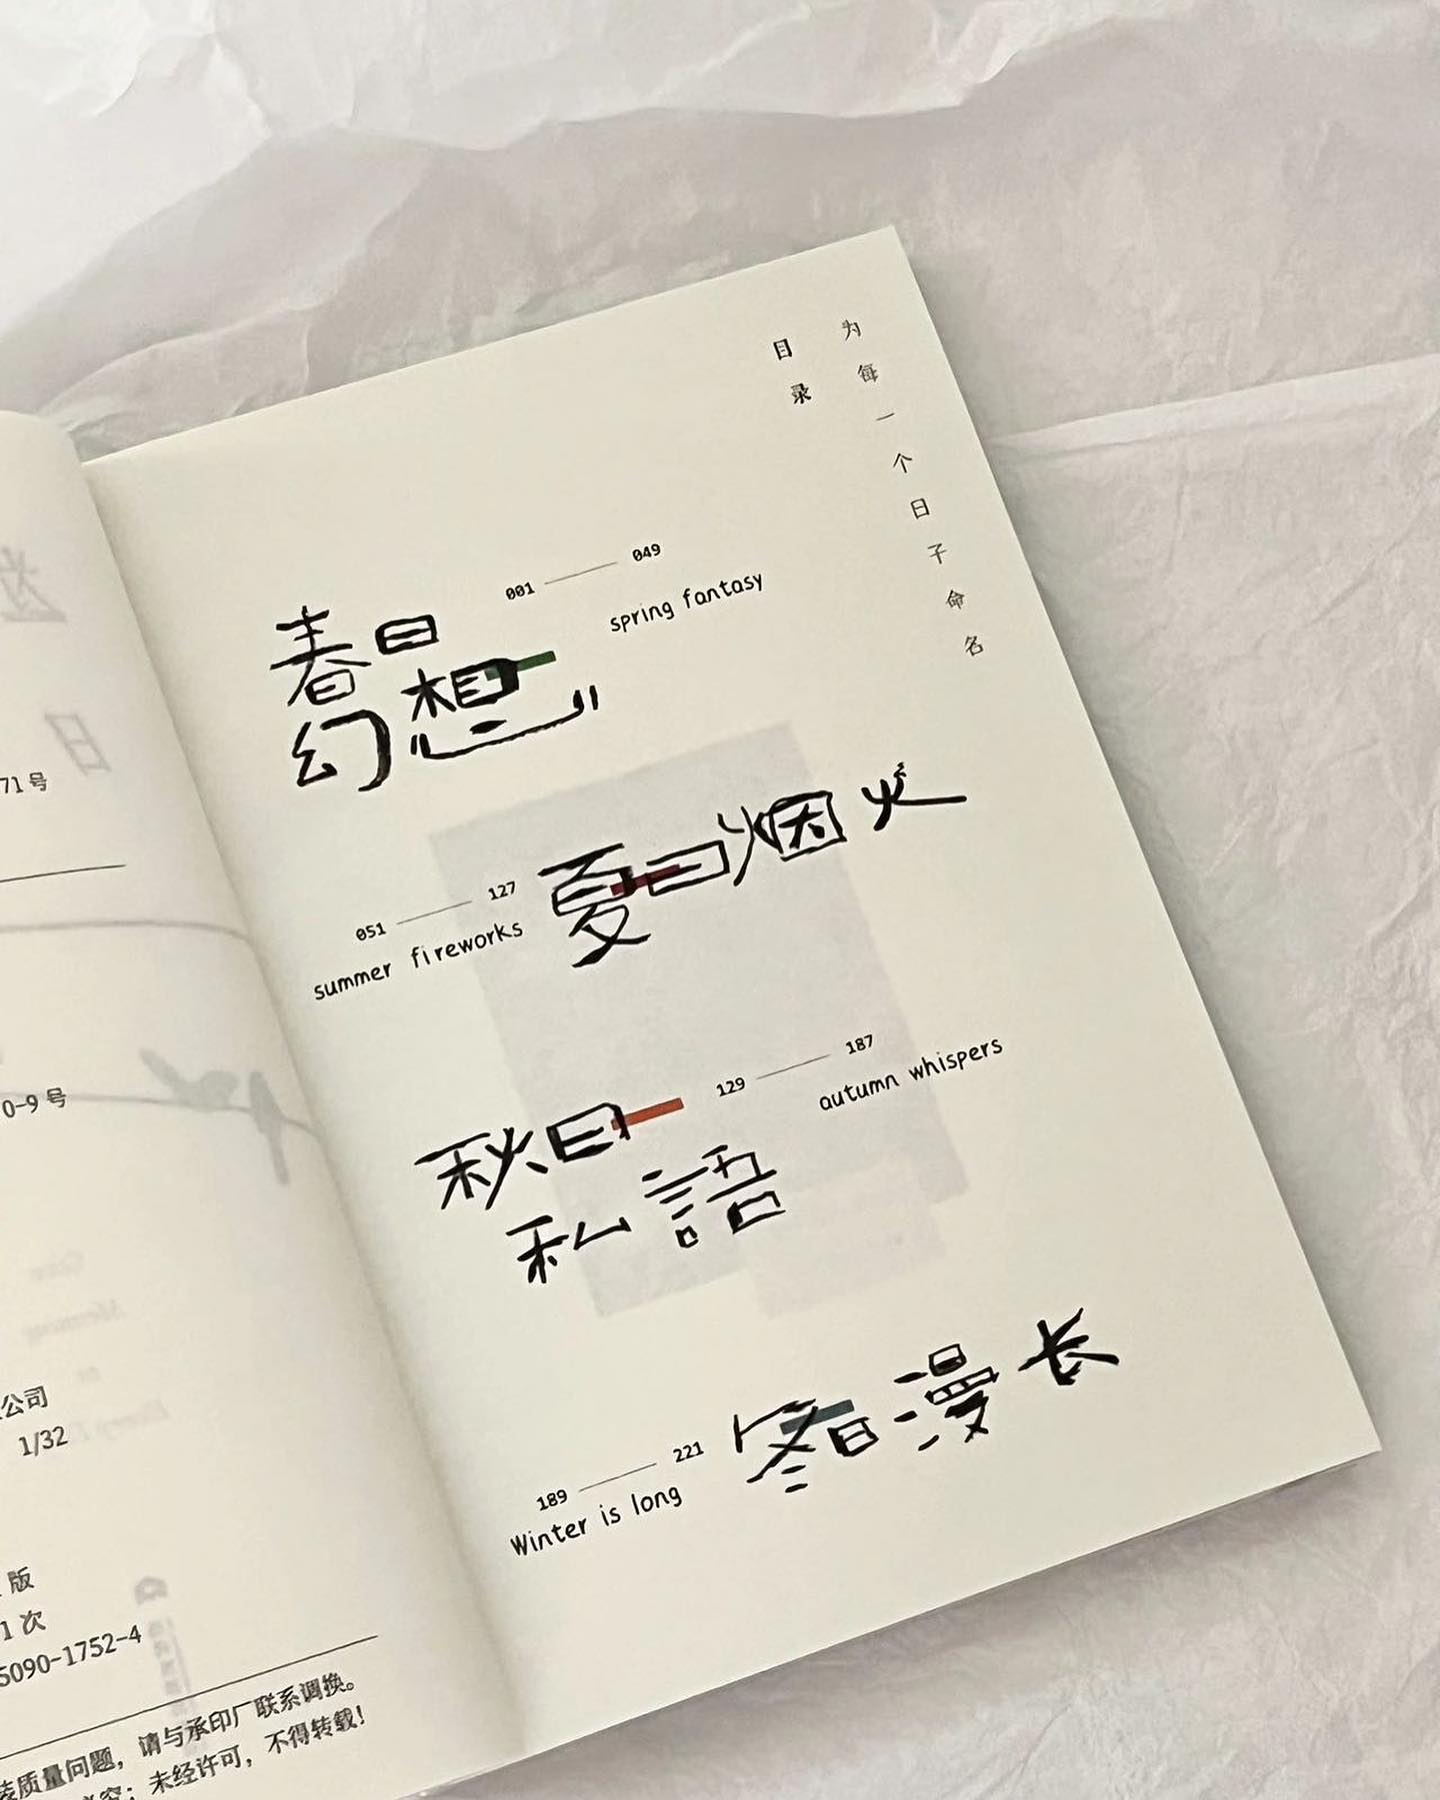 为每一个日子命名
目录
001 —— 049
spring fantasy
春日
幻想
051 —— 127
summer fireworks
夏日烟火
129 —— 187
autumn whispers
秋日
私語
189 —— 221
Winter is long
冬日漫长
71号
0-9号
公司
1/32
版
1次
5090-1752-4
装质量问题，请与承印厂联系调换。
必究；未经许可，不得转载！